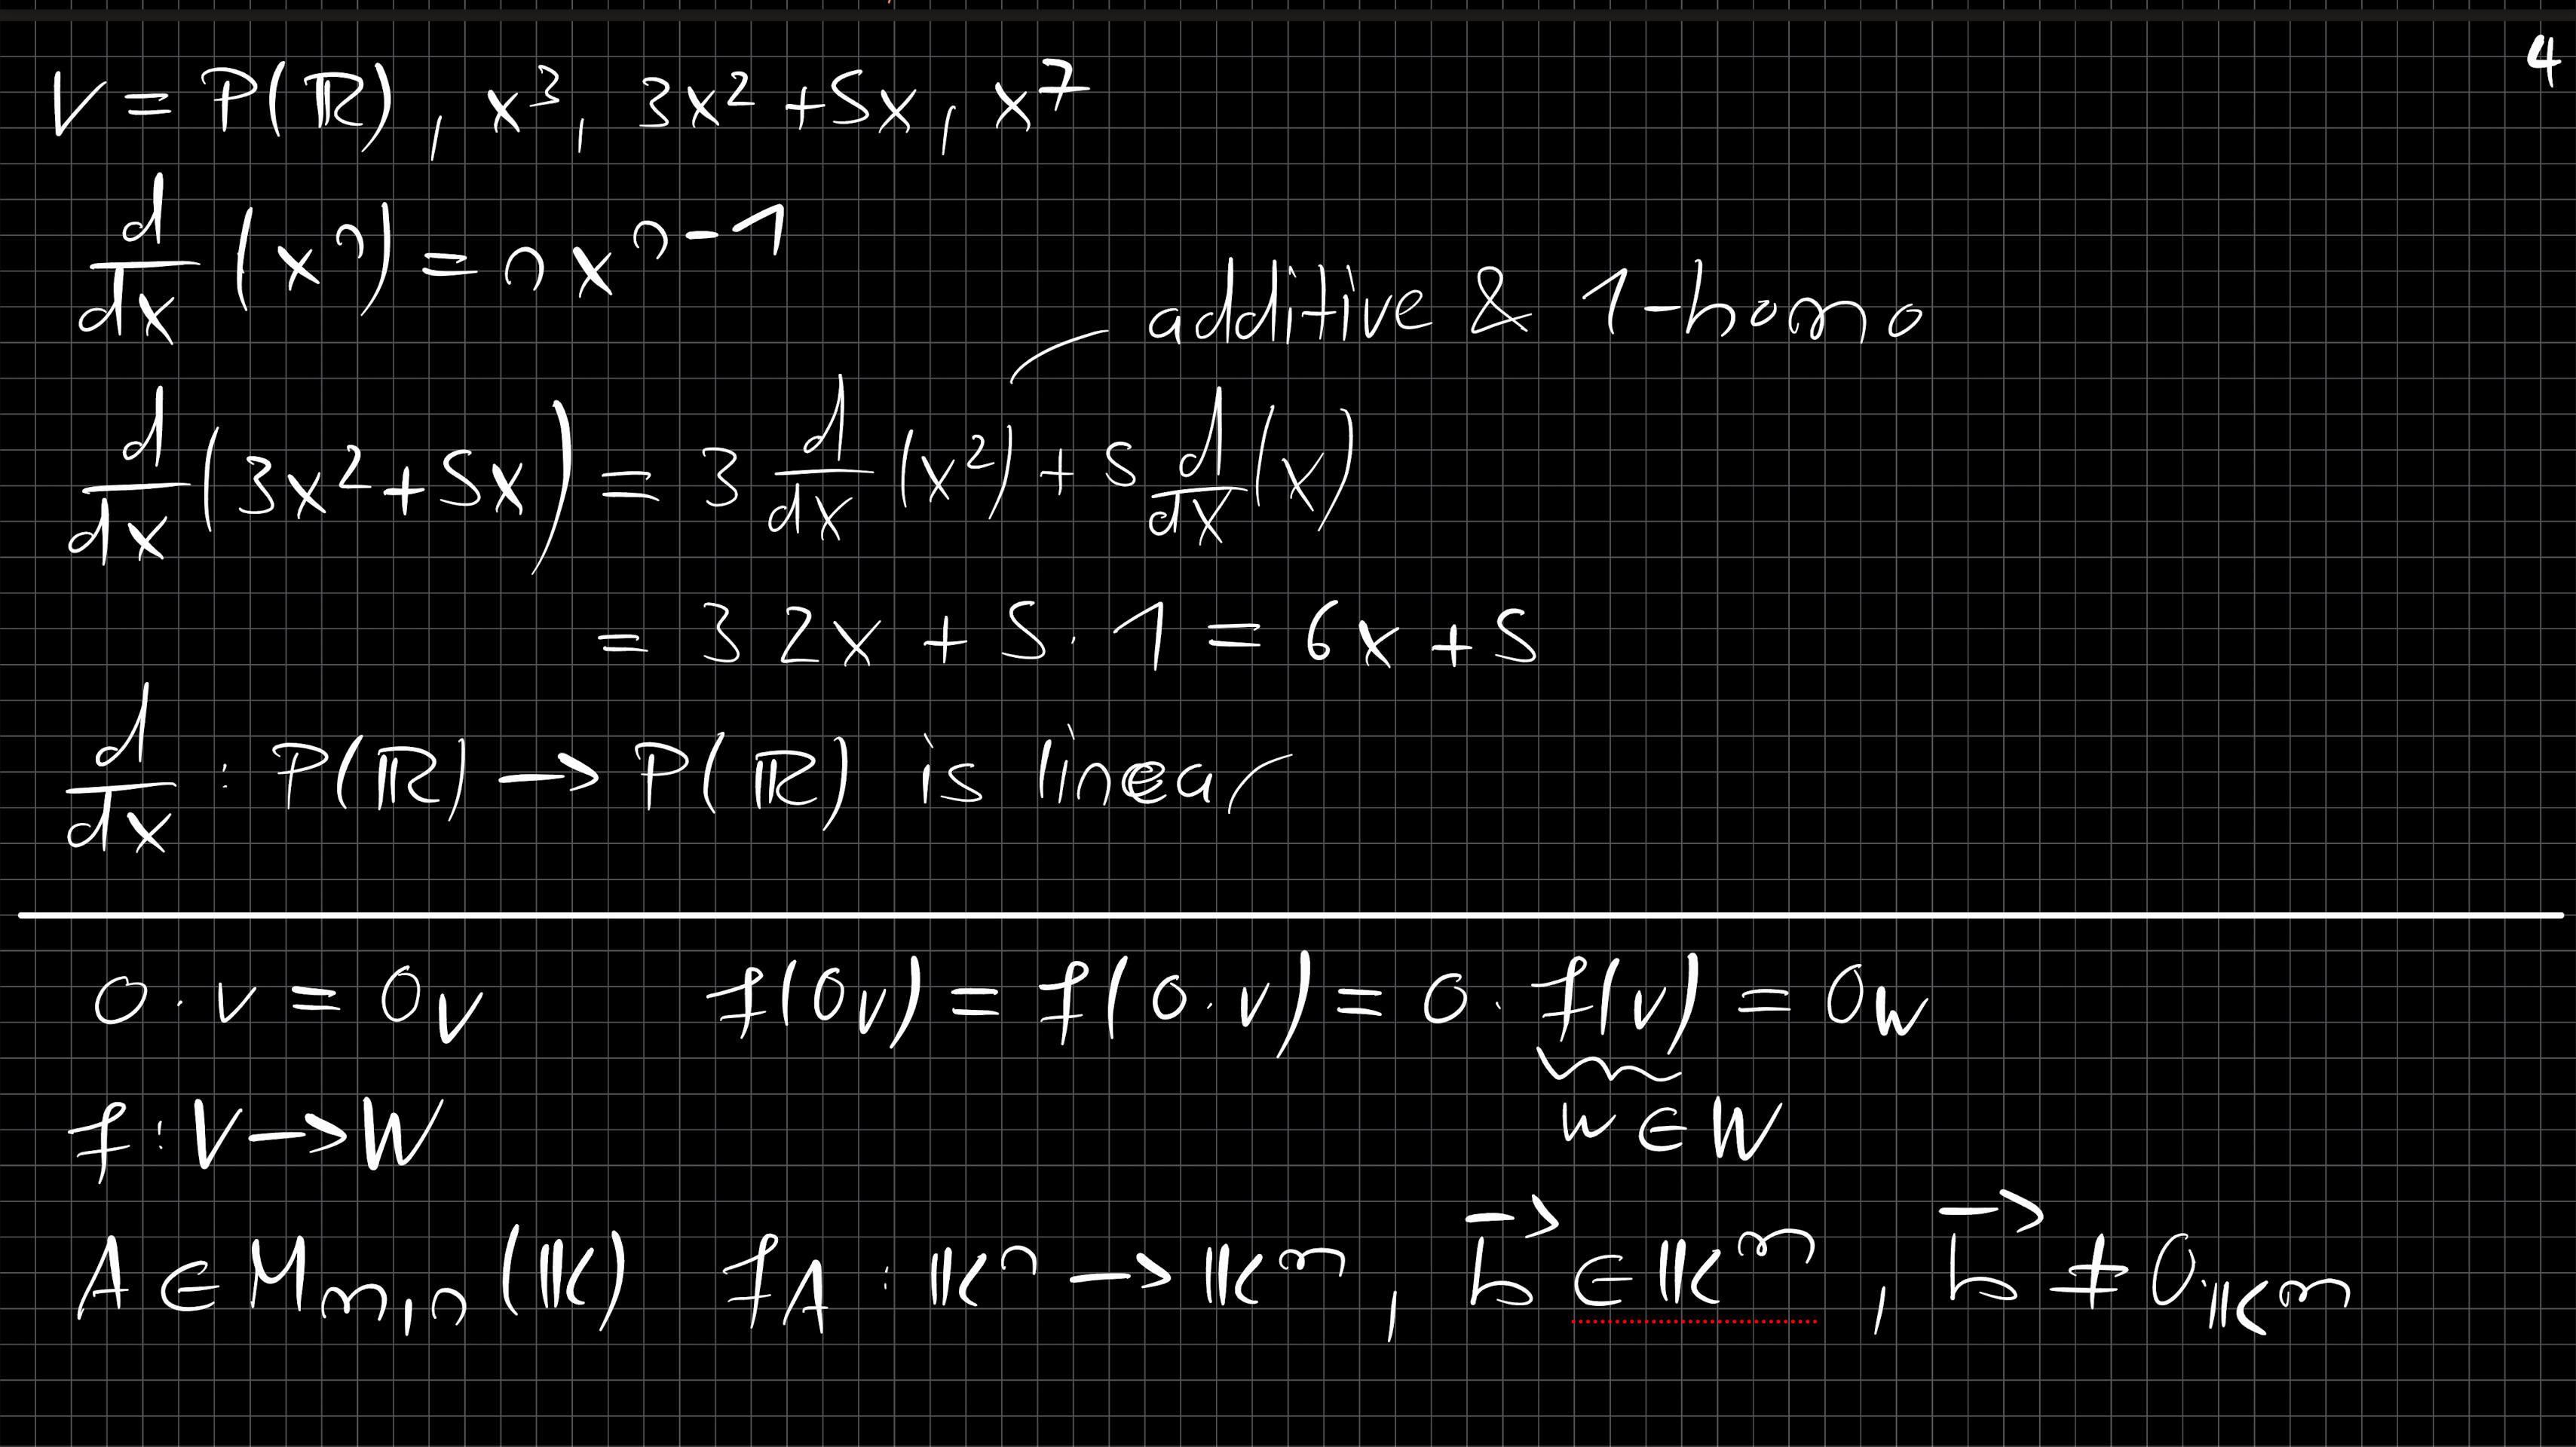 4
V = P(ℝ), x³, 3x² + 5x, x⁷
d/dx (xⁿ) = n xⁿ⁻¹
additive & 1-homo
d/dx (3x² + 5x) = 3 d/dx (x²) + 5 d/dx (x)
= 3 2x + 5 · 1 = 6x + 5
d/dx : P(ℝ) → P(ℝ) is linear
0 · v = 0_V f(0_V) = f(0 · v) = 0 · f(v) = 0_W
f : V → W w ∈ W
A ∈ M_{m,n}(𝕂) f_A : 𝕂ⁿ → 𝕂ᵐ, b⃗ ∈ 𝕂ᵐ, b⃗ ≠ 0_{𝕂ᵐ}